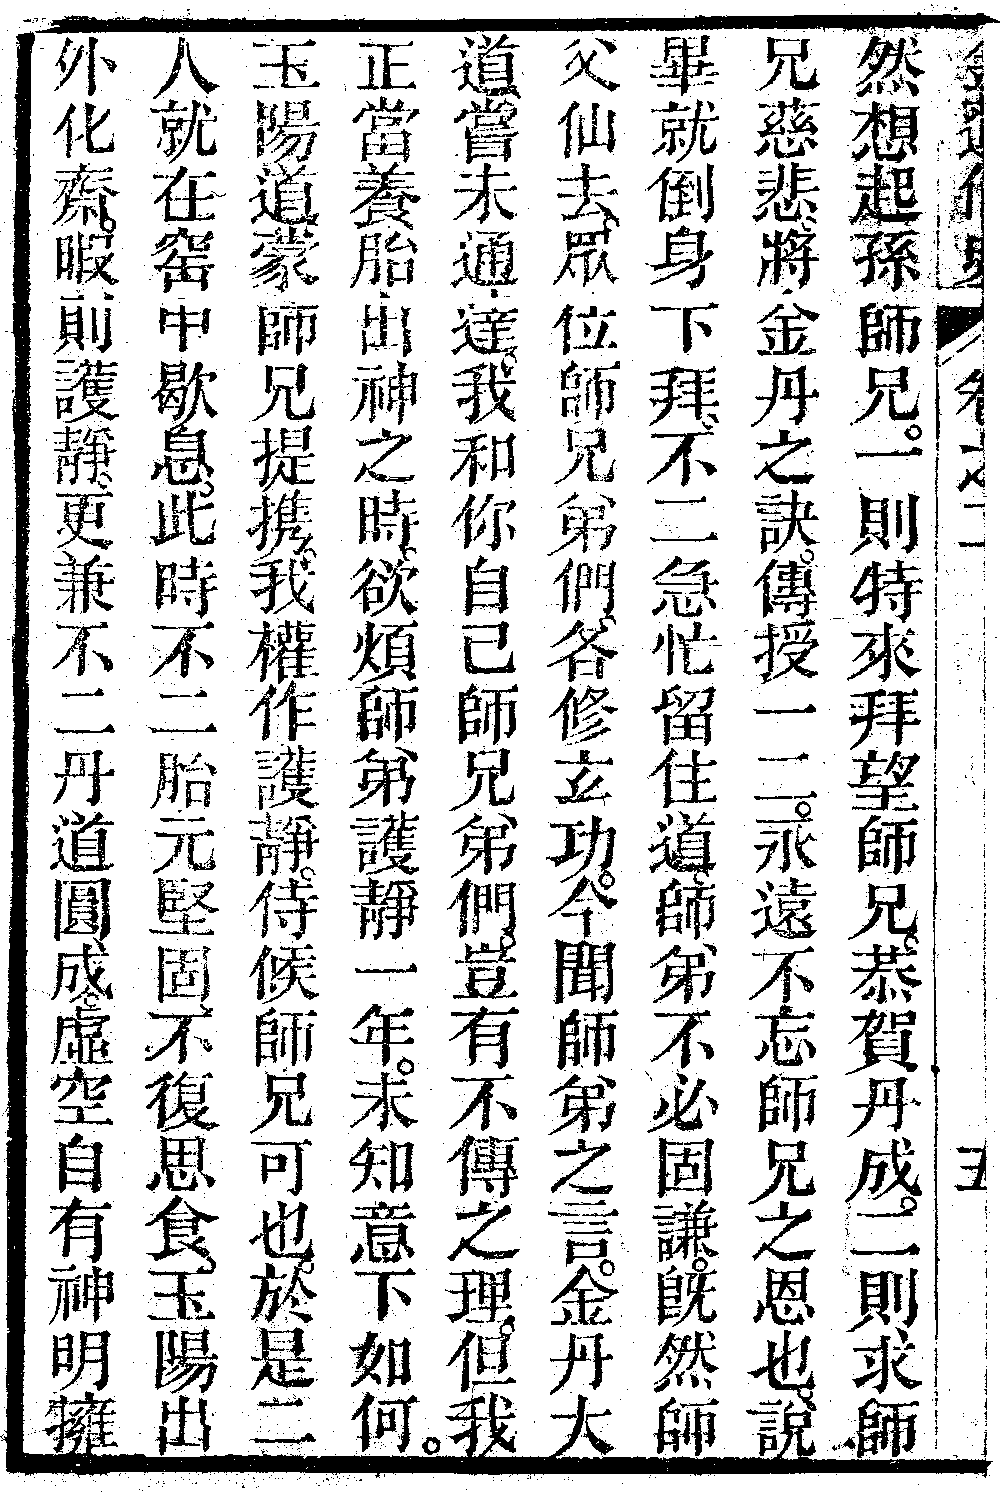 然想起孫師兄。一則特來拜望師兄。恭賀丹成。二則求師
兄慈悲。將金丹之訣。傳授一二。永遠不忘師兄之恩也。說
畢就倒身下拜。不二急忙留住道。師弟不必固謙。旣然師
父仙去。眾位師兄弟們。各修玄功。今聞師弟之言。金丹大
道。嘗未通達。我和你自己師兄弟們。豈有不傳之理。但我
正當養胎出神之時。欲煩師弟護靜一年。未知意下如何。
玉陽道。蒙師兄提携。我權作護靜。侍候師兄可也。於是二
人就在窑中歇息。此時不二胎元堅固。不復思食。玉陽出
外化齋。暇則護靜。更兼不二丹道圓成。虛空自有神明擁
卷之二
五